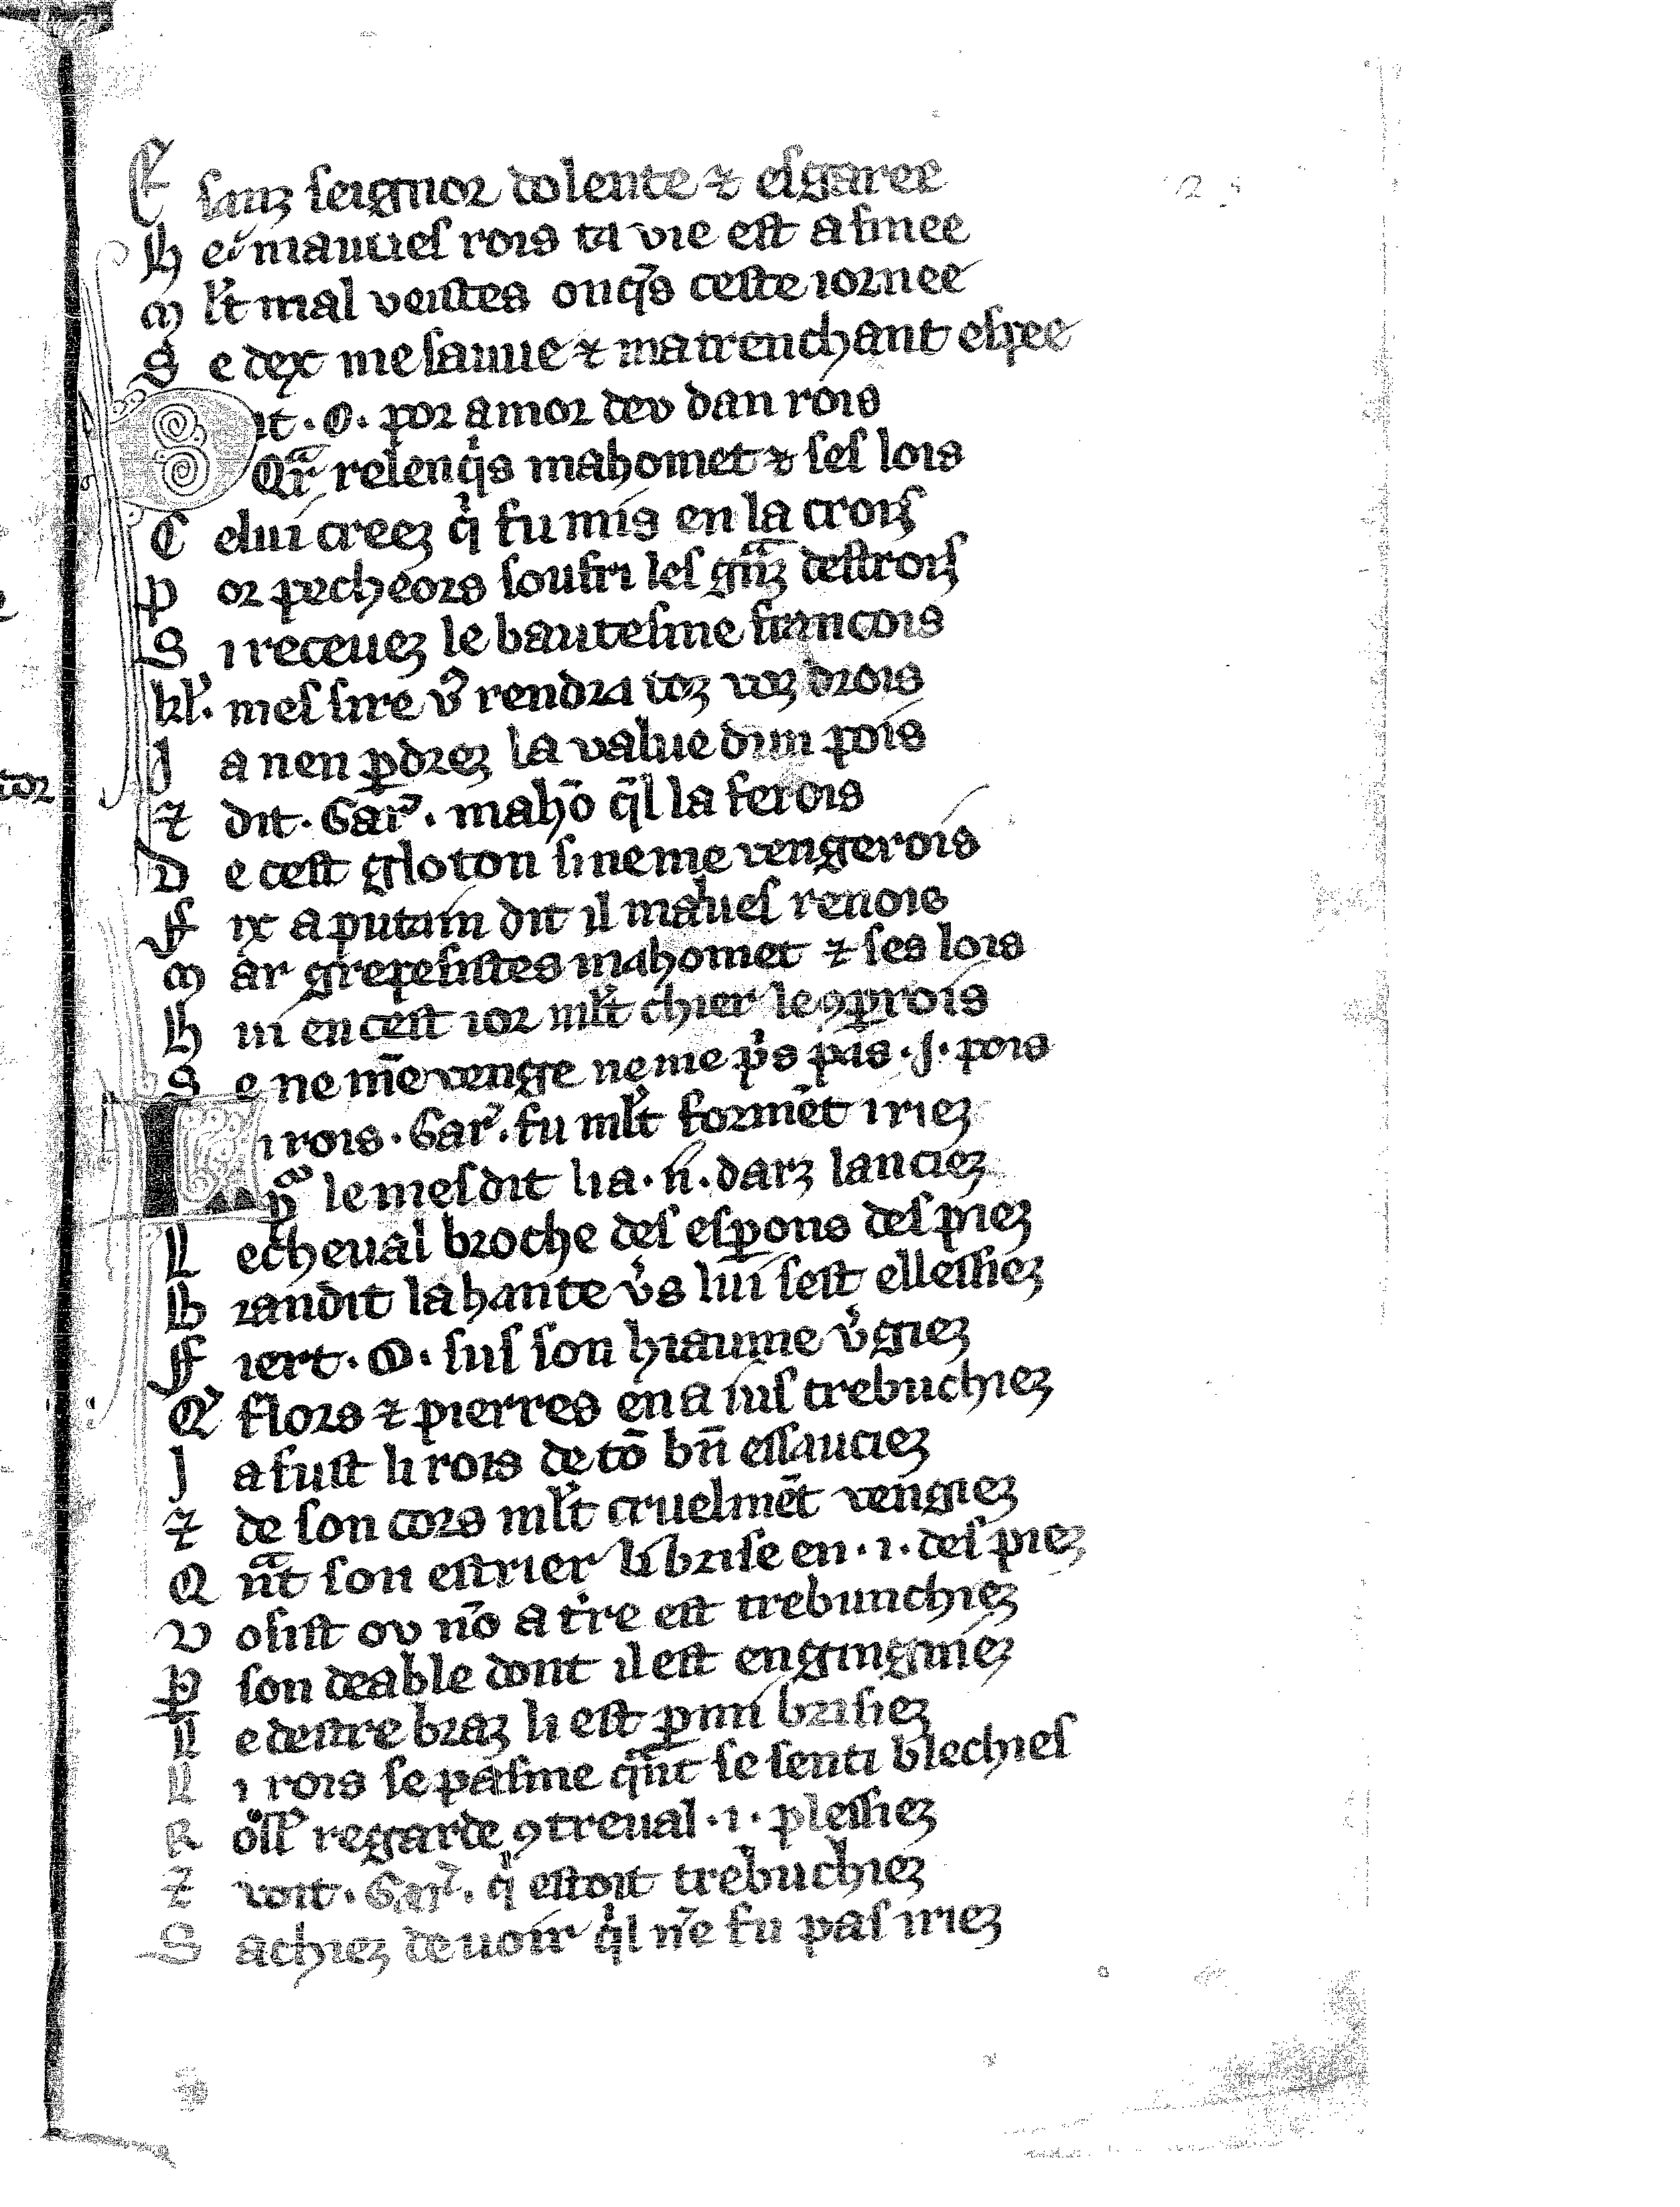 E sanz seignor dolente ⁊ esgaree
H e mauues rois ta vie est afinee
M lt mal veistes onq̄s ceste iornee
S e dex me sauue ⁊ ma trenchant espee
D it · O · por amor deu dan rois
Qr relenq̇s mahomet ⁊ ses lois
C elui creez q̇ fu mis en la croiz
P or pecheors soufri les gnz destroiz
S i receuez le bautesme francois
kl'. mes sire v͛ rendra toz voz drois
J a nen ꝑdrez la value dun pois
⁊ dit · Gar͛ · mahō q̄l la ferois
D e cest gloton si ne me vengerois
F ix a putain dit il malues renois
M ar grepesistes mahomet ⁊ ses lois
H ui en cest ior mlt chier le ꝯꝑrois
S e ne m̄e venge ne me pͥs pas · J · pois
L i rois · Gar͛ · fu mlt formēt iriez
pᵒ le mesdit li a · ii · darz lanciez
L e cheual broche des esꝑons des piez
B randit la hante v͛s lui sest ellessiez
F iert · O · sus son hiaume v͛giez
Q' flors ⁊ pierres en a ius trebuchiez
J a fust li rois de tō bn̄ essauciez
⁊ de son cors mlt cruelmēt vengiez
Q nt son estrier li brise en · i · des piez
V osist ou nō a t͛re est trebunchiez
ꝑ son deable dont il est enginginiez
L e destre braz li est ꝑmi brisiez
L i rois se pasme qnt se senti blechies
R oll' regarde ꝯtreual · i · plessiez
⁊ voit · Gar͛ · q̇ estoit trebuchiez
S achiez de uoir q̇l n̄e fu pas iriez